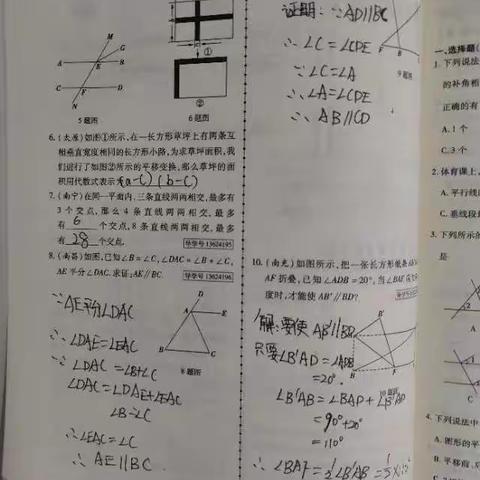 M
G
A
E
B
C
F
D
N
5 题图
①
②
6 题图
6. (太原)如图①所示,在一长方形草坪上有两条互
相垂直宽度相同的长方形小路,为求草坪面积,我
们进行了如图②所示的平移变换,那么草坪的面
积用代数式表示 (a-c)(b-c)
7. (南宁)在同一平面内,三条直线两两相交,最多有
3 个交点,那么 4 条直线两两相交,最多
有 6 个交点,8 条直线两两相交,最多
有 28 个交点.
导学号 13624195
8. 已知∠B=∠C,∠DAC=∠B+∠C,
AE 平分∠DAC.求证:AE∥BC.
导学号 13624196
∵AE平分∠DAC
∴∠DAE=∠EAC
∵∠DAC=∠B+∠C
∠DAC=∠DAE+∠EAC
∠B=∠C
∴∠EAC=∠C
∴AE∥BC
D
A
E
B
C
8 题图
证明:∵AD∥BC
∴∠C=∠CDE
∵∠C=∠A
∴∠A=∠CDE
∴AB∥CD
9 题图
10. 如图所示,把一张长方形纸条
AF 折叠,已知∠ADB=20°,当∠BAF
度时,才能使 AB′∥BD?
解:要使 AB′∥BD
只要∠B′AD=∠ADB
=20°.
∠B′AB=∠BAD+∠B′AD
=90°+20°
=110°
∴∠BAF=
一、选择题
1. 下列说法
的补角相
正确的有
A. 1 个
C. 3 个
2. 体育课上,
A. 平行线
C. 垂线段
3. 下列所示的
是
4. 下列说法中
A. 图形的平
B. 平移前、